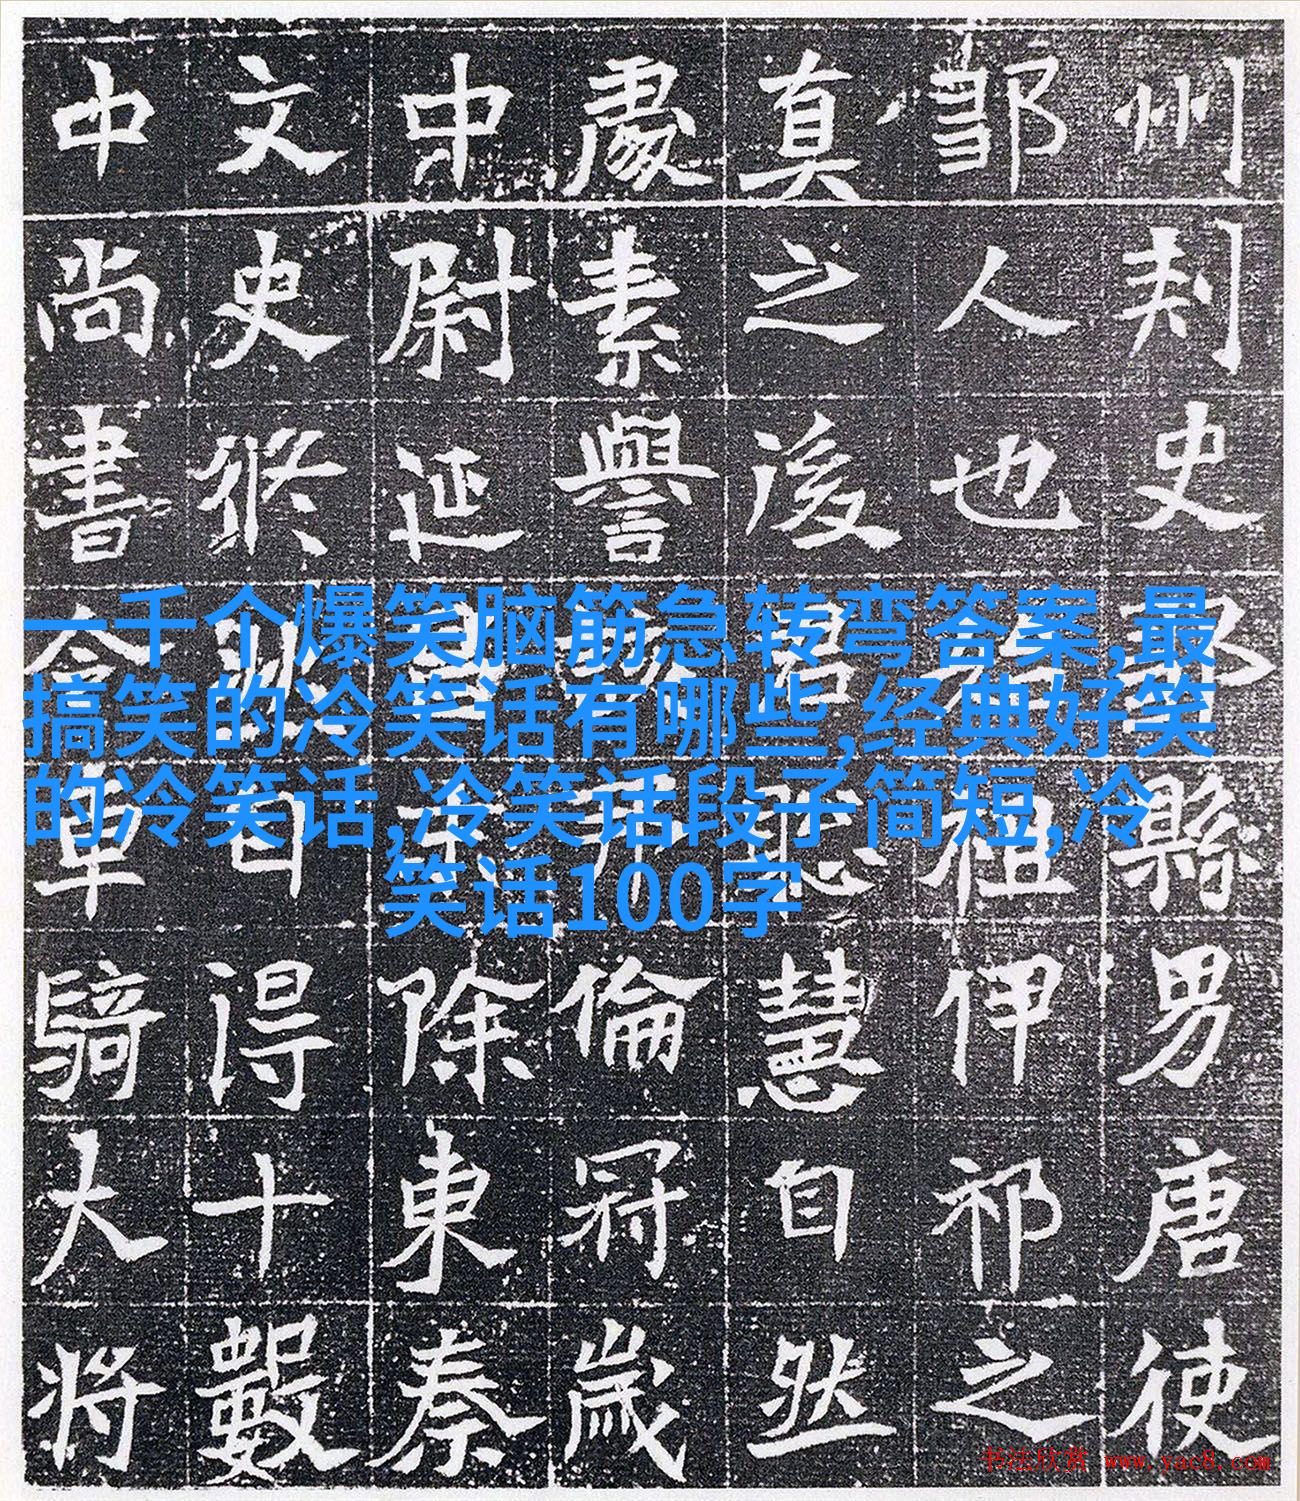 州刾史縣男唐使
鄒人也祖伊祁之
真之後君慧自然
處素譽倫冠歲
中尉延除東秦
文史日得十數
中尚書令車騎大將
一千个爆笑脑筋急转弯答案,最
搞笑的冷笑话有哪些,经典好笑
的冷笑话,冷笑话段子简短,冷
笑话100字
书法欣赏 www.yac8.com